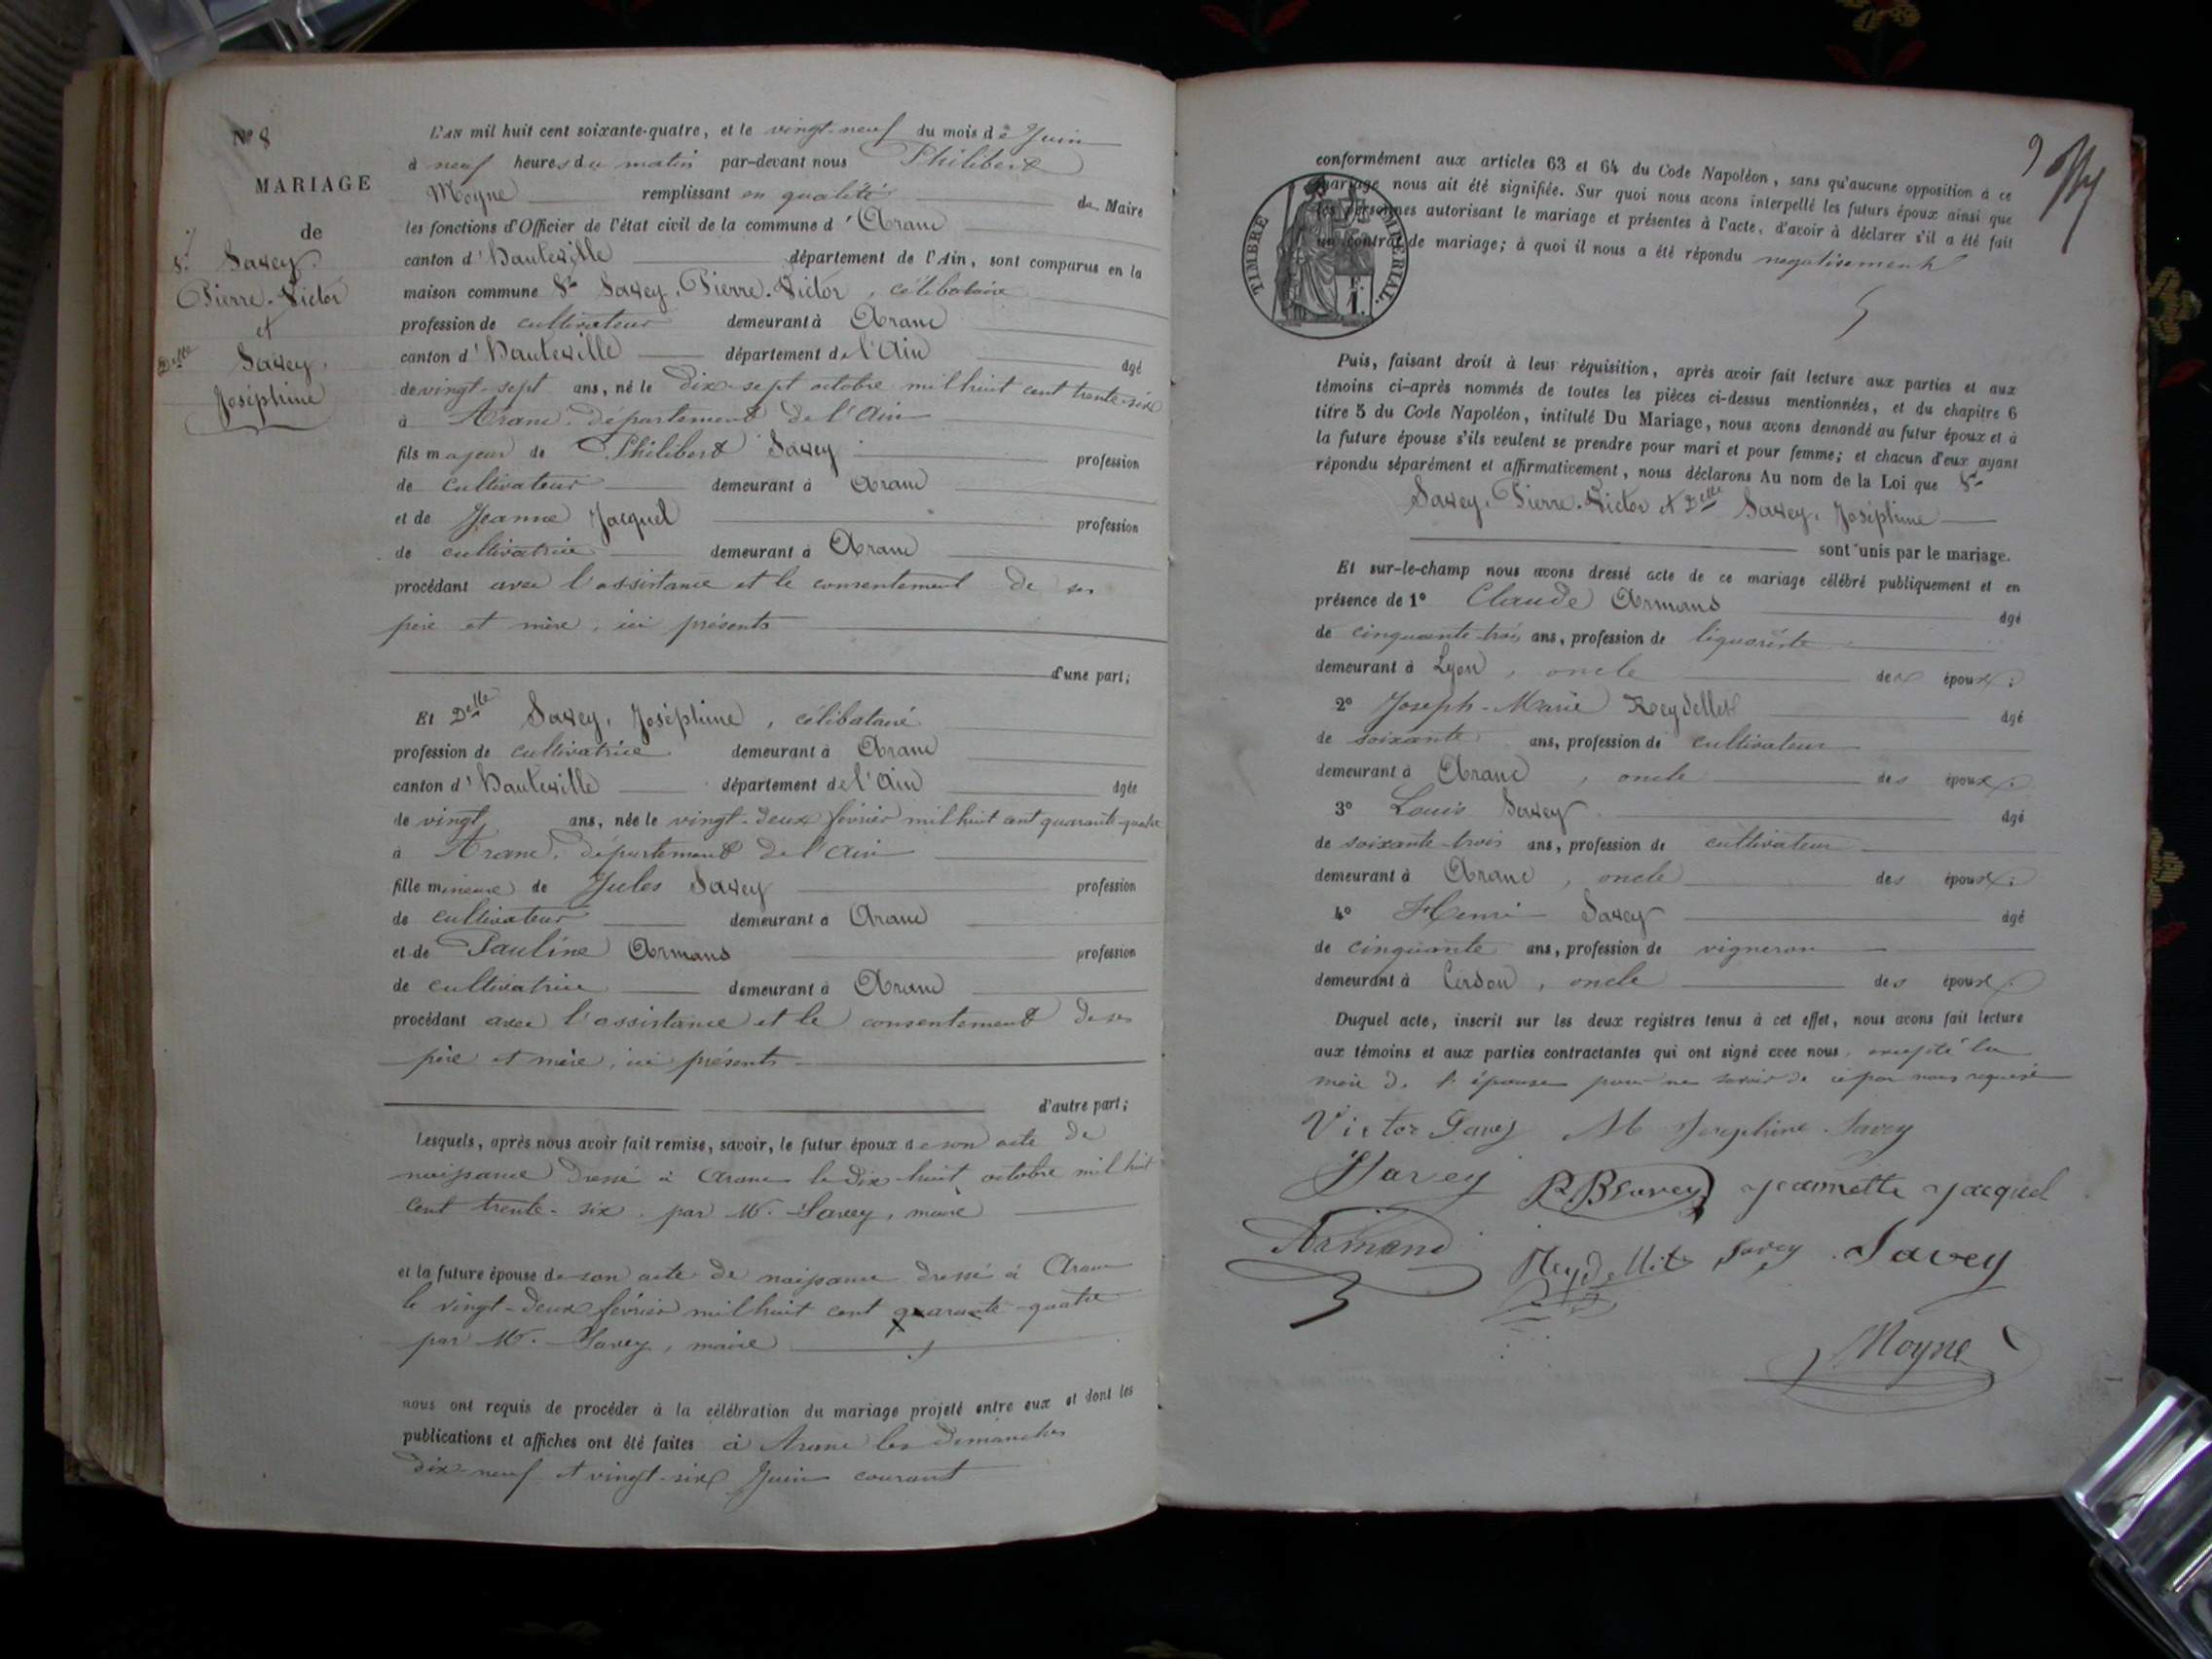 N° 8
MARIAGE
de
S. Savey.
Pierre-Victor
et
Delle Savey,
Joséphine
L'AN mil huit cent soixante-quatre, et le vingt-neuf du mois de Juin
à neuf heures du matin par-devant nous Philibert
Moyne remplissant en qualité de Maire
les fonctions d'Officier de l'état civil de la commune d'Aranc
canton d'Hauteville département de l'Ain, sont comparus en la
maison commune Sr Savey, Pierre-Victor, célibataire
profession de cultivateur demeurant à Aranc
canton d'Hauteville département de l'Ain âgé
de vingt-sept ans, né le dix-sept octobre mil huit cent trente-six
à Aranc, département de l'Ain
fils majeur de Philibert Savey profession
de cultivateur demeurant à Aranc
et de Jeanne Jacquel profession
de cultivatrice demeurant à Aranc
procédant avec l'assistance et le consentement de ses
père et mère, ici présents
d'une part;
Et Delle Savey, Joséphine, célibataire
profession de cultivatrice demeurant à Aranc
canton d'Hauteville département de l'Ain âgée
de vingt ans, née le vingt-deux février mil huit cent quarante-quatre
à Aranc, département de l'Ain
fille mineure de Jules Savey profession
de cultivateur demeurant à Aranc
et de Pauline Armand profession
de cultivatrice demeurant à Aranc
procédant avec l'assistance et le consentement de ses
père et mère, ici présents
d'autre part;
Lesquels, après nous avoir fait remise, savoir, le futur époux de son acte de
naissance dressé à Aranc le dix-huit octobre mil huit
cent trente-six, par M. Savey, maire
et la future épouse de son acte de naissance dressé à Aranc
le vingt-deux février mil huit cent quarante-quatre
par M. Savey, maire
nous ont requis de procéder à la célébration du mariage projeté entre eux et dont les
publications et affiches ont été faites à Aranc les dimanches
dix-neuf et vingt-six Juin courant
9
conformément aux articles 63 et 64 du Code Napoléon, sans qu'aucune opposition à ce
mariage nous ait été signifiée. Sur quoi nous avons interpellé les futurs époux ainsi que
les personnes autorisant le mariage et présentes à l'acte, d'avoir à déclarer s'il a été fait
un contrat de mariage; à quoi il nous a été répondu negativement
TIMBRE IMPÉRIAL.
1 F.
Puis, faisant droit à leur réquisition, après avoir fait lecture aux parties et aux
témoins ci-après nommés de toutes les pièces ci-dessus mentionnées, et du chapitre 6
titre 5 du Code Napoléon, intitulé Du Mariage, nous avons demandé au futur époux et à
la future épouse s'ils veulent se prendre pour mari et pour femme; et chacun d'eux ayant
répondu séparément et affirmativement, nous déclarons Au nom de la Loi que Sr
Savey, Pierre-Victor et Delle Savey, Joséphine
sont unis par le mariage.
Et sur-le-champ nous avons dressé acte de ce mariage célébré publiquement et en
présence de 1° Claude Armand âgé
de cinquante-trois ans, profession de liquoriste
demeurant à Lyon, oncle des époux;
2° Joseph-Marie Reydellet âgé
de soixante ans, profession de cultivateur
demeurant à Aranc, oncle des époux;
3° Louis Savey âgé
de soixante-trois ans, profession de cultivateur
demeurant à Aranc, oncle des époux;
4° Henri Savey âgé
de cinquante ans, profession de vigneron
demeurant à Cerdon, oncle des époux.
Duquel acte, inscrit sur les deux registres tenus à cet effet, nous avons fait lecture
aux témoins et aux parties contractantes qui ont signé avec nous, excepté la
mère de l'épouse pour ne savoir de ce par nous requise
Victor Savey M Josephine Savey
Savey Savey Jeannette Jacquel
Armand Reydellet Savey Savey
Moyne